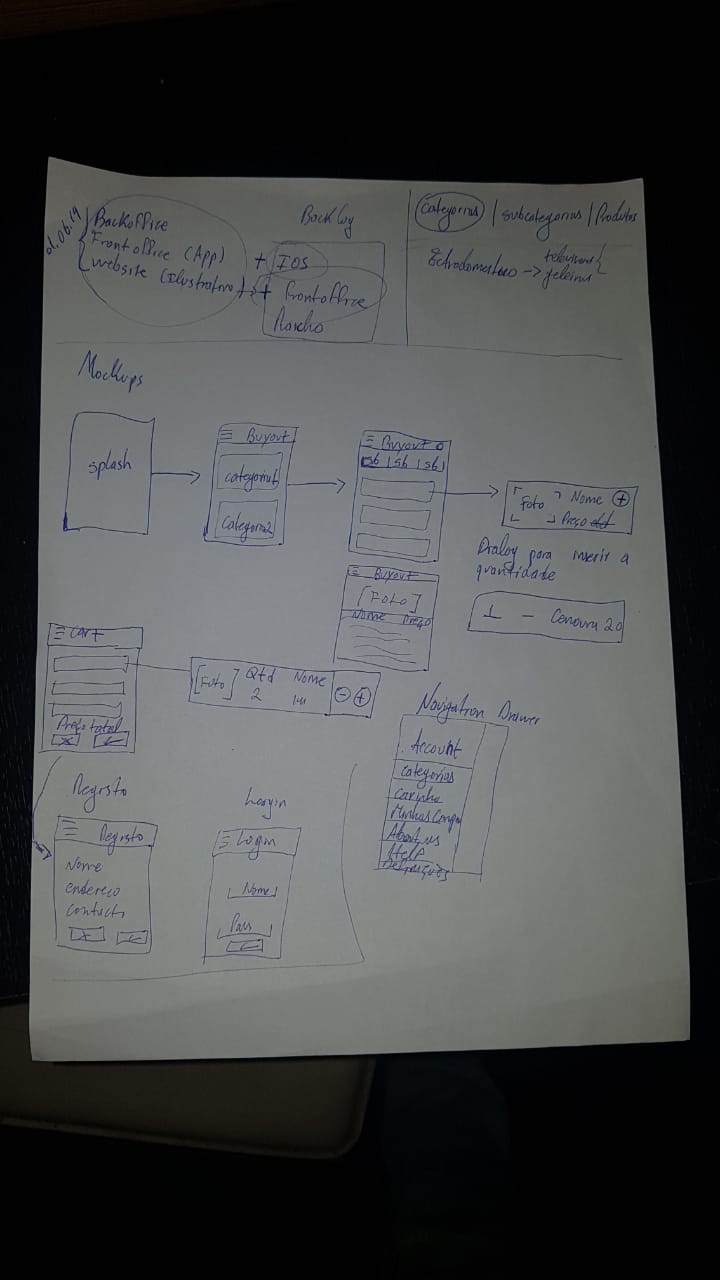 01.06.19
Backoffice
Front office (App)
website (Ilustrativo)
Backlog
+ IOS
+ Frontoffice
Rancho
Categorias | Subcategorias | Produtos
->
Mockups
splash
Buyout
categoria1
Categoria2
Buyout
Sb | Sb | Sb |
Foto Nome +
Preço
Dialog para inserir a
quantidade
1 - Cenoura 20
Buyout
[Foto]
Nome Preço
Cart
Preço total
[Foto] Qtd Nome - +
2
Navigation Drawer
Account
Categorias
Carinho
About us
Help
Definições
Registo
Registo
Nome
endereço
Contacto
Login
Login
Nome
Pass